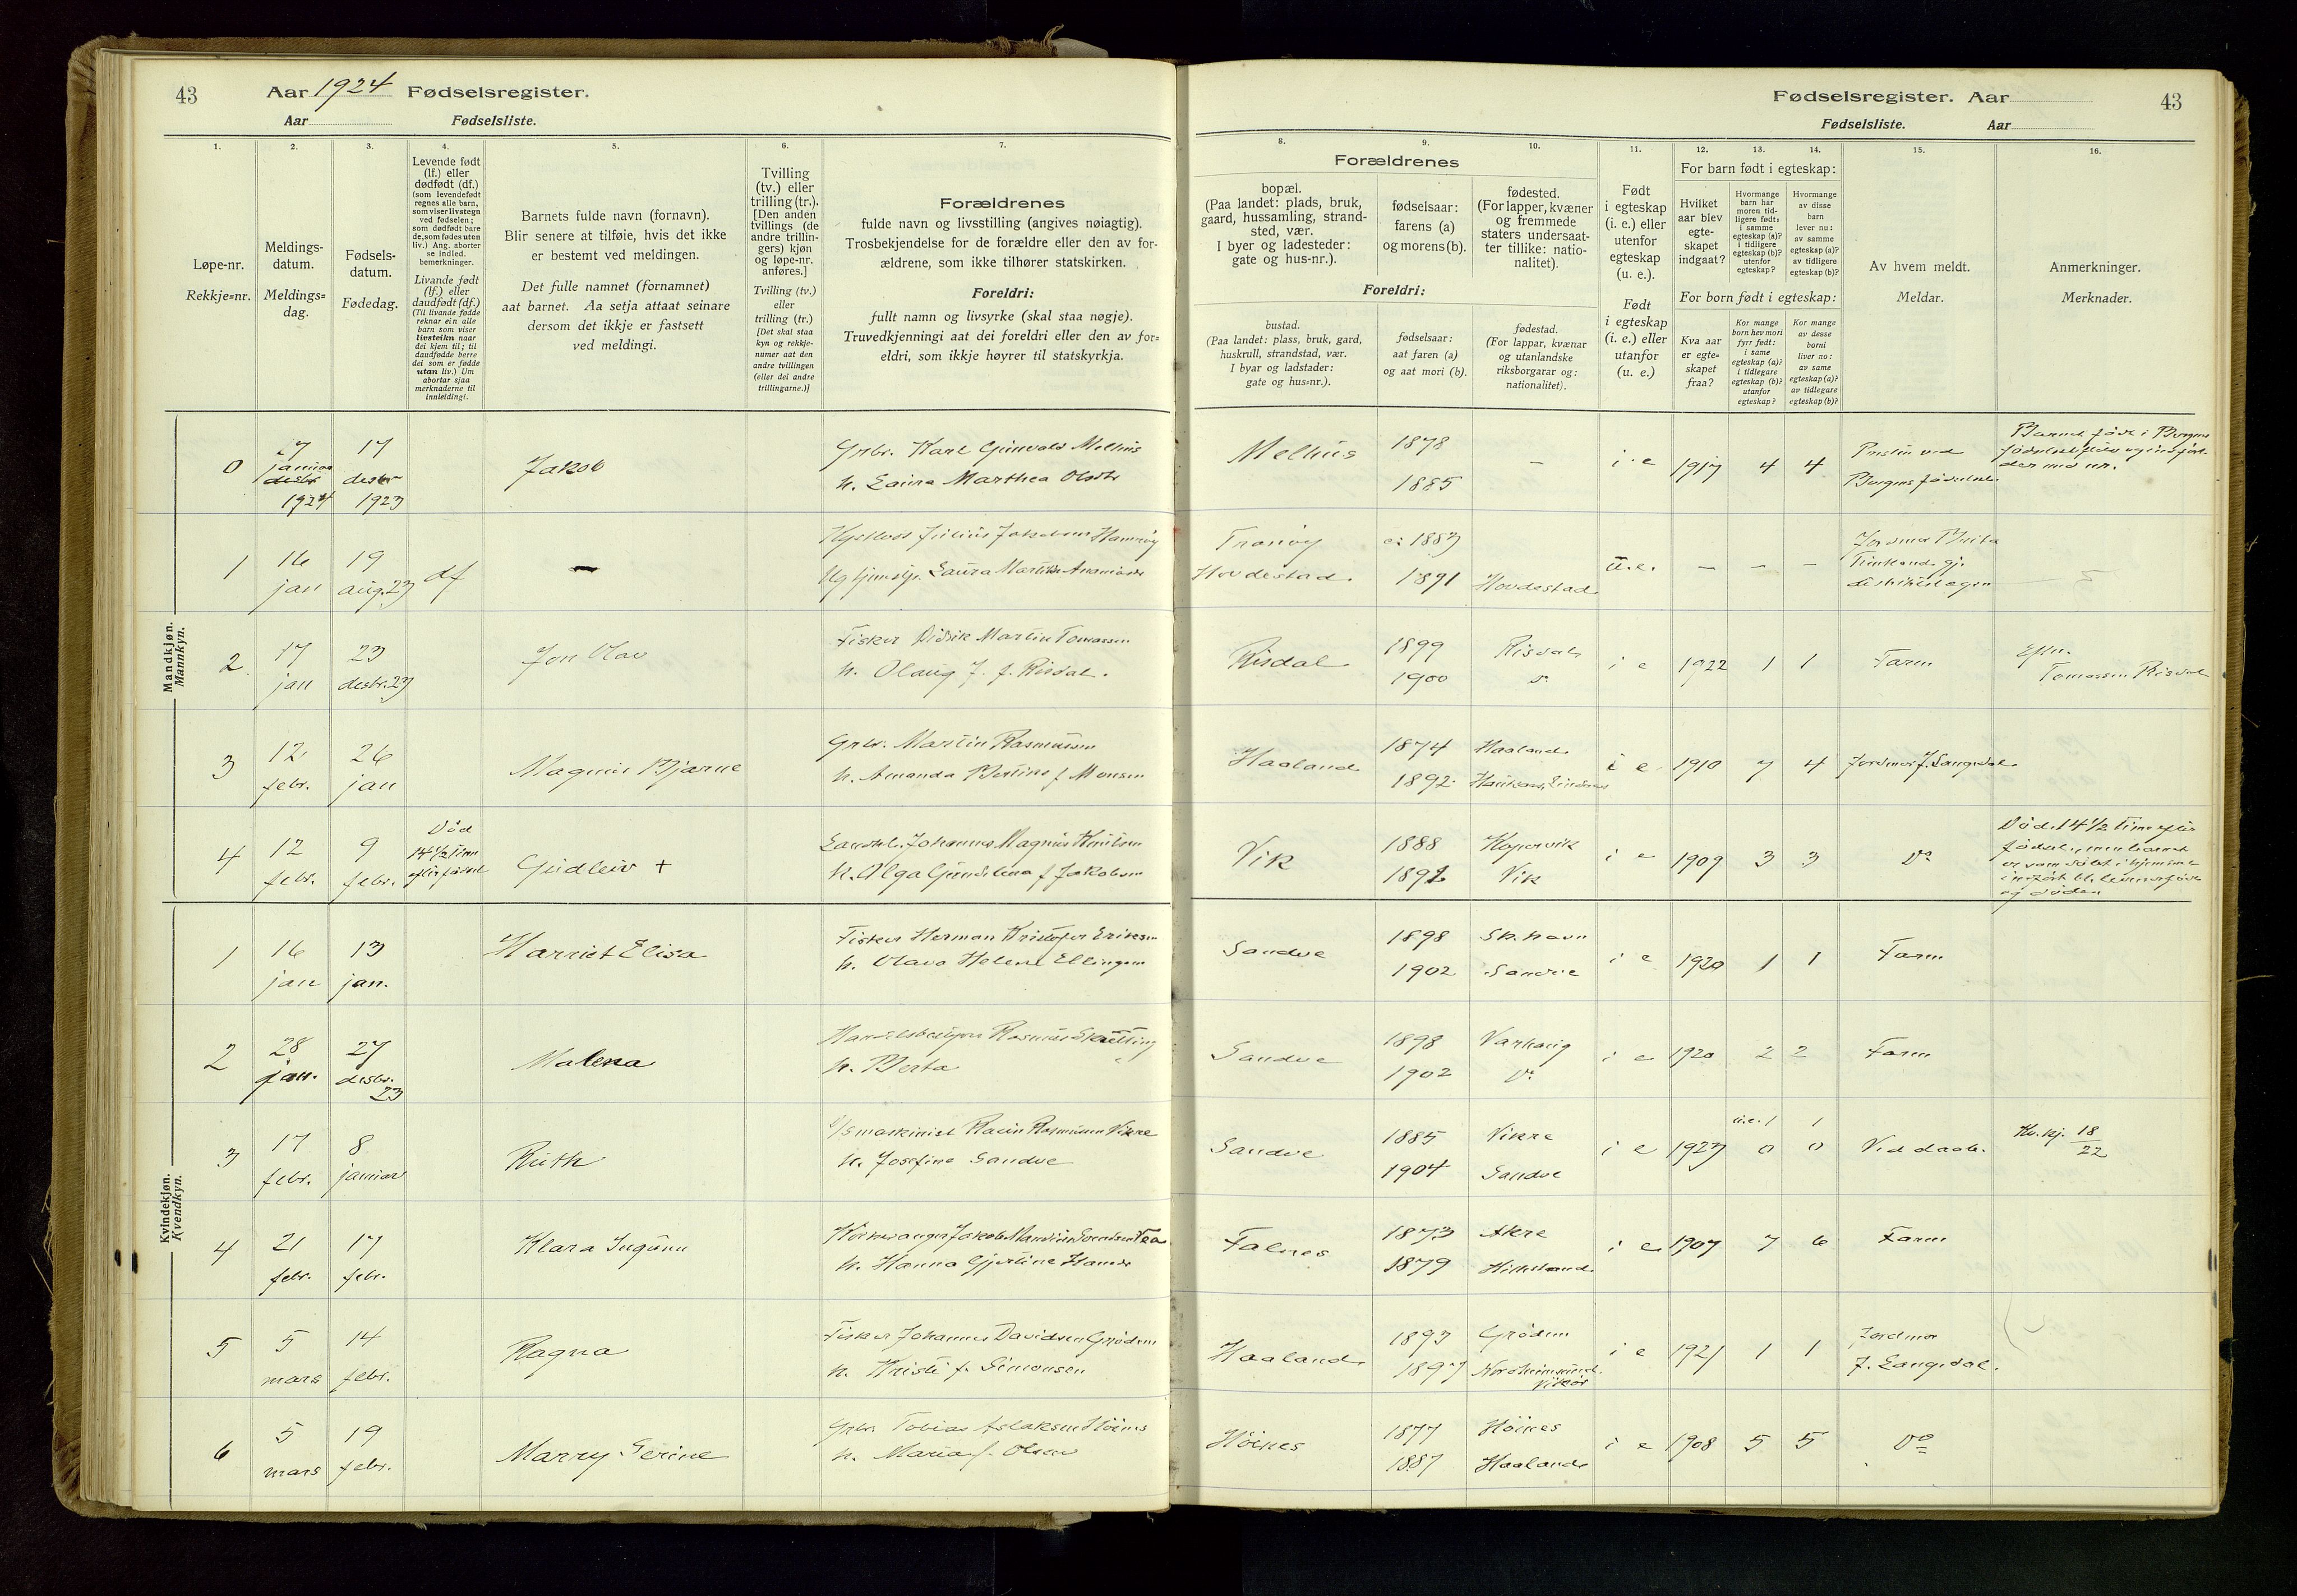 43
Aar 1924 Fødselsregister.
Aar Fødselsliste.
1.
Løpe-nr.
Rekkje=nr.
2.
Meldings-
datum.
Meldings=
dag.
3.
Fødsels-
datum.
Fødedag.
4.
Levende født
(lf.) eller
dødfødt (df.)
(som levendefødt
regnes alle barn,
som viser livstegn
ved fødselen;
som dødfødt bare
de, som fødes uten
liv.) Ang. aborter
se indled.
bemerkninger.
Livande født
(lf.) eller
daudfødt (df.)
(Til livande fødde
reknar ein alle
barn som viser
livsteikn naar
dei kjem til; til
daudfødde berre
dei som er fødde
utan liv.) Um
abortar sjaa
merknaderne til
innleidingi.
5.
Barnets fulde navn (fornavn).
Blir senere at tilføie, hvis det ikke
er bestemt ved meldingen.
Det fulle namnet (fornamnet)
aat barnet. Aa setja attaat seinare
dersom det ikkje er fastsett
ved meldingi.
6.
Tvilling
(tv.) eller
trilling (tr.).
[Den anden
tvillings (de
andre trillin-
gers) kjøn
og løpe-nr.
anføres.]
Tvilling (tv.)
eller
trilling (tr.)
[Det skal staa
kyn og rekkje-
numer aat den
andre tvillingen
(eller dei andre
trillingarne.)]
7.
Forældrenes
fulde navn og livsstilling (angives nøiagtig).
Trosbekjendelse for de forældre eller den av for-
ældrene, som ikke tilhører statskirken.
Foreldri:
fullt namn og livsyrke (skal staa nøgje).
Truvedkjenningi aat dei foreldri eller den av for=
eldri, som ikkje høyrer til statskyrkja.
Mandkjøn.
Mannkyn.
0 27 januar desbr 1924 17 desbr 1923 Jakob
Grbr. Karl Gunvald Melhus
h. Laura Marthea
1 16 jan 19 aug. 23 df —
Julius Hamnøy
Laura
2 17 jan 23 desbr. 23 Jon Olav
Fisker Didrik Martin Tomassen
h. Olaug J. f. Risdal.
3 12 febr. 26 jan Magnus Bjarne
Grbr. Martin Rasmussen
h. Amanda Bertine f Monsen
4 12 febr. 9 febr. Død 14 1/2 time efter fødsel Gudleiv +
Johannes Magnus Knutsen
h. Olga Gundelina f Jakobsen
Kvindekjøn.
Kvendkyn.
1 16 jan 13 jan. Harriet Elisa
Fisker Herman Kristofer Eriksen
h. Olava Helene Ellingsen
2 28 jan. 27 desbr. 23 Malena
Rasmus
h. Berta
3 17 febr. 8 januar Ruth
Rasmussen Vikre
h. Josefine Sandve
4 21 febr. 17 febr. Klara Ingunn
Jakob
h. Hanna Gjertine
5 5 mars 14 febr. Ragna
Fisker Johannes Davidsen Grødem
h. Kristi f. Simonsen
6 5 mars 19 febr. Marry Serine
Grbr. Tobias Aslaksen Höines
h. Maria f. Olsen
Fødselsregister. Aar
43
Fødselsliste. Aar
8. 9. 10.
Forældrenes
bopæl.
(Paa landet: plads, bruk,
gaard, hussamling, strand-
sted, vær.
I byer og ladesteder:
gate og hus-nr.).
fødselsaar:
farens (a)
og morens (b).
fødested.
(For lapper, kvæner
og fremmede
staters undersaat-
ter tillike: natio-
nalitet).
Foreldri:
bustad.
(Paa landet: plass, bruk, gard,
huskrull, strandstad, vær.
I byar og ladstader:
gate og hus=nr.).
fødselsaar:
aat faren (a)
og aat mori (b).
fødestad.
(For lappar, kvænar
og utanlandske
riksborgarar og:
nationalitet).
11.
Født
i egteskap
(i. e.) eller
utenfor
egteskap
(u. e.).
Født
i egteskap
(i. e.) eller
utanfor
egteskap
(u. e.)
12. 13. 14.
For barn født i egteskap:
Hvilket
aar blev
egte-
skapet
indgaat?
Hvormange
barn har
moren tid-
ligere født:
i samme
egteskap (a)?
i tidligere
egteskap (b)?
utenfor
egteskap?
Hvormange
av disse
barn
lever nu:
av samme
egteskap (a)?
av tidligere
egteskap (b)?
For born født i egteskap:
Kva aar
er egte=
skapet
fraa?
Kor mange
born hev mori
fyrr født:
i same
egteskap (a)?
i tidlegare
egteskap (b)?
utanfor
egteskap?
Kor mange
av desse
borni
liver no:
av same
egteskap (a)?
av tidlegare
egteskap (b)?
15.
Av hvem meldt.
Meldar.
16.
Anmerkninger.
Merknader.
Melhus 1878 1885 — i e 1917 4 4
Tranøy Hovdestad. 1883 1891 Hovdestad u. e. — — — Jordmor
Risdal 1899 1900 Risdal do i e 1922 1 1 Farm
Eftn. Tomassen Risdal
Haaland 1874 1892 Haaland i e 1910 7 4 Jordmor J. Langedal.
Vik 1888 1892 Kopervik Vik i e 1909 3 3 Do
Død 14 1/2 time efter
Sandve 1898 1902 Sk.havn Sandve i e 1920 1 1 Farm
Sandve 1898 1902 Varhaug Do i e 1920 2 2 Farm
Sandve 1885 1904 Vikre Sandve i e 1923 u.e. 1 0 1 0 Ved daab. 18/22
Falnes 1873 1879 Akre i e 1907 7 6 Farm
Haaland 1893 1897 Grødem Vikör i e 1921 1 1 Jordmor J. Langedal.
Höines 1877 1887 Höines Haaland i e 1908 5 5 Do